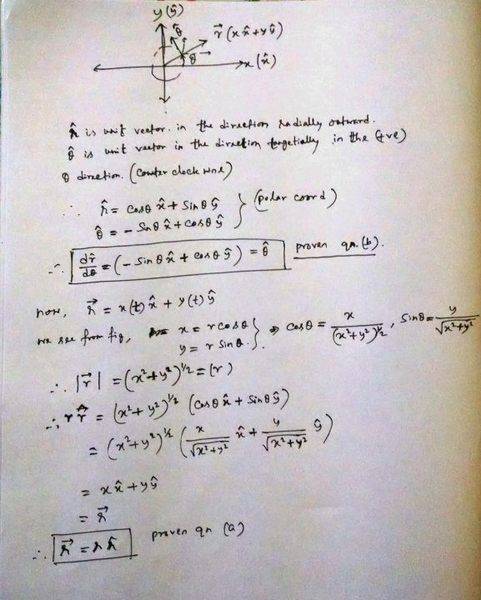 y(ŷ)
θ̂ r⃗ (x x̂ + y ŷ)
θ x(x̂)
r̂ is unit vector in the direction radially outward.
θ̂ is unit vector in the direction tangetially in the (+ve)
θ direction. (counter clock wise)
∴ r̂ = cosθ x̂ + sinθ ŷ } (polar coord)
θ̂ = - sinθ x̂ + cosθ ŷ
∴ dr̂/dθ = (- sinθ x̂ + cosθ ŷ) = θ̂ proven qn.(b).
now, r⃗ = x(t) x̂ + y(t) ŷ
we see from fig, x = r cosθ } ⇒ cosθ = x/(x²+y²)^½ , sinθ = y/√(x²+y²)
y = r sinθ
∴ |r⃗| = (x²+y²)^½ = (r)
∴ r r̂ = (x²+y²)^½ (cosθ x̂ + sinθ ŷ)
= (x²+y²)^½ (x/√(x²+y²) x̂ + y/√(x²+y²) ŷ)
= x x̂ + y ŷ
= r⃗
∴ r⃗ = r r̂ proven qn (a)